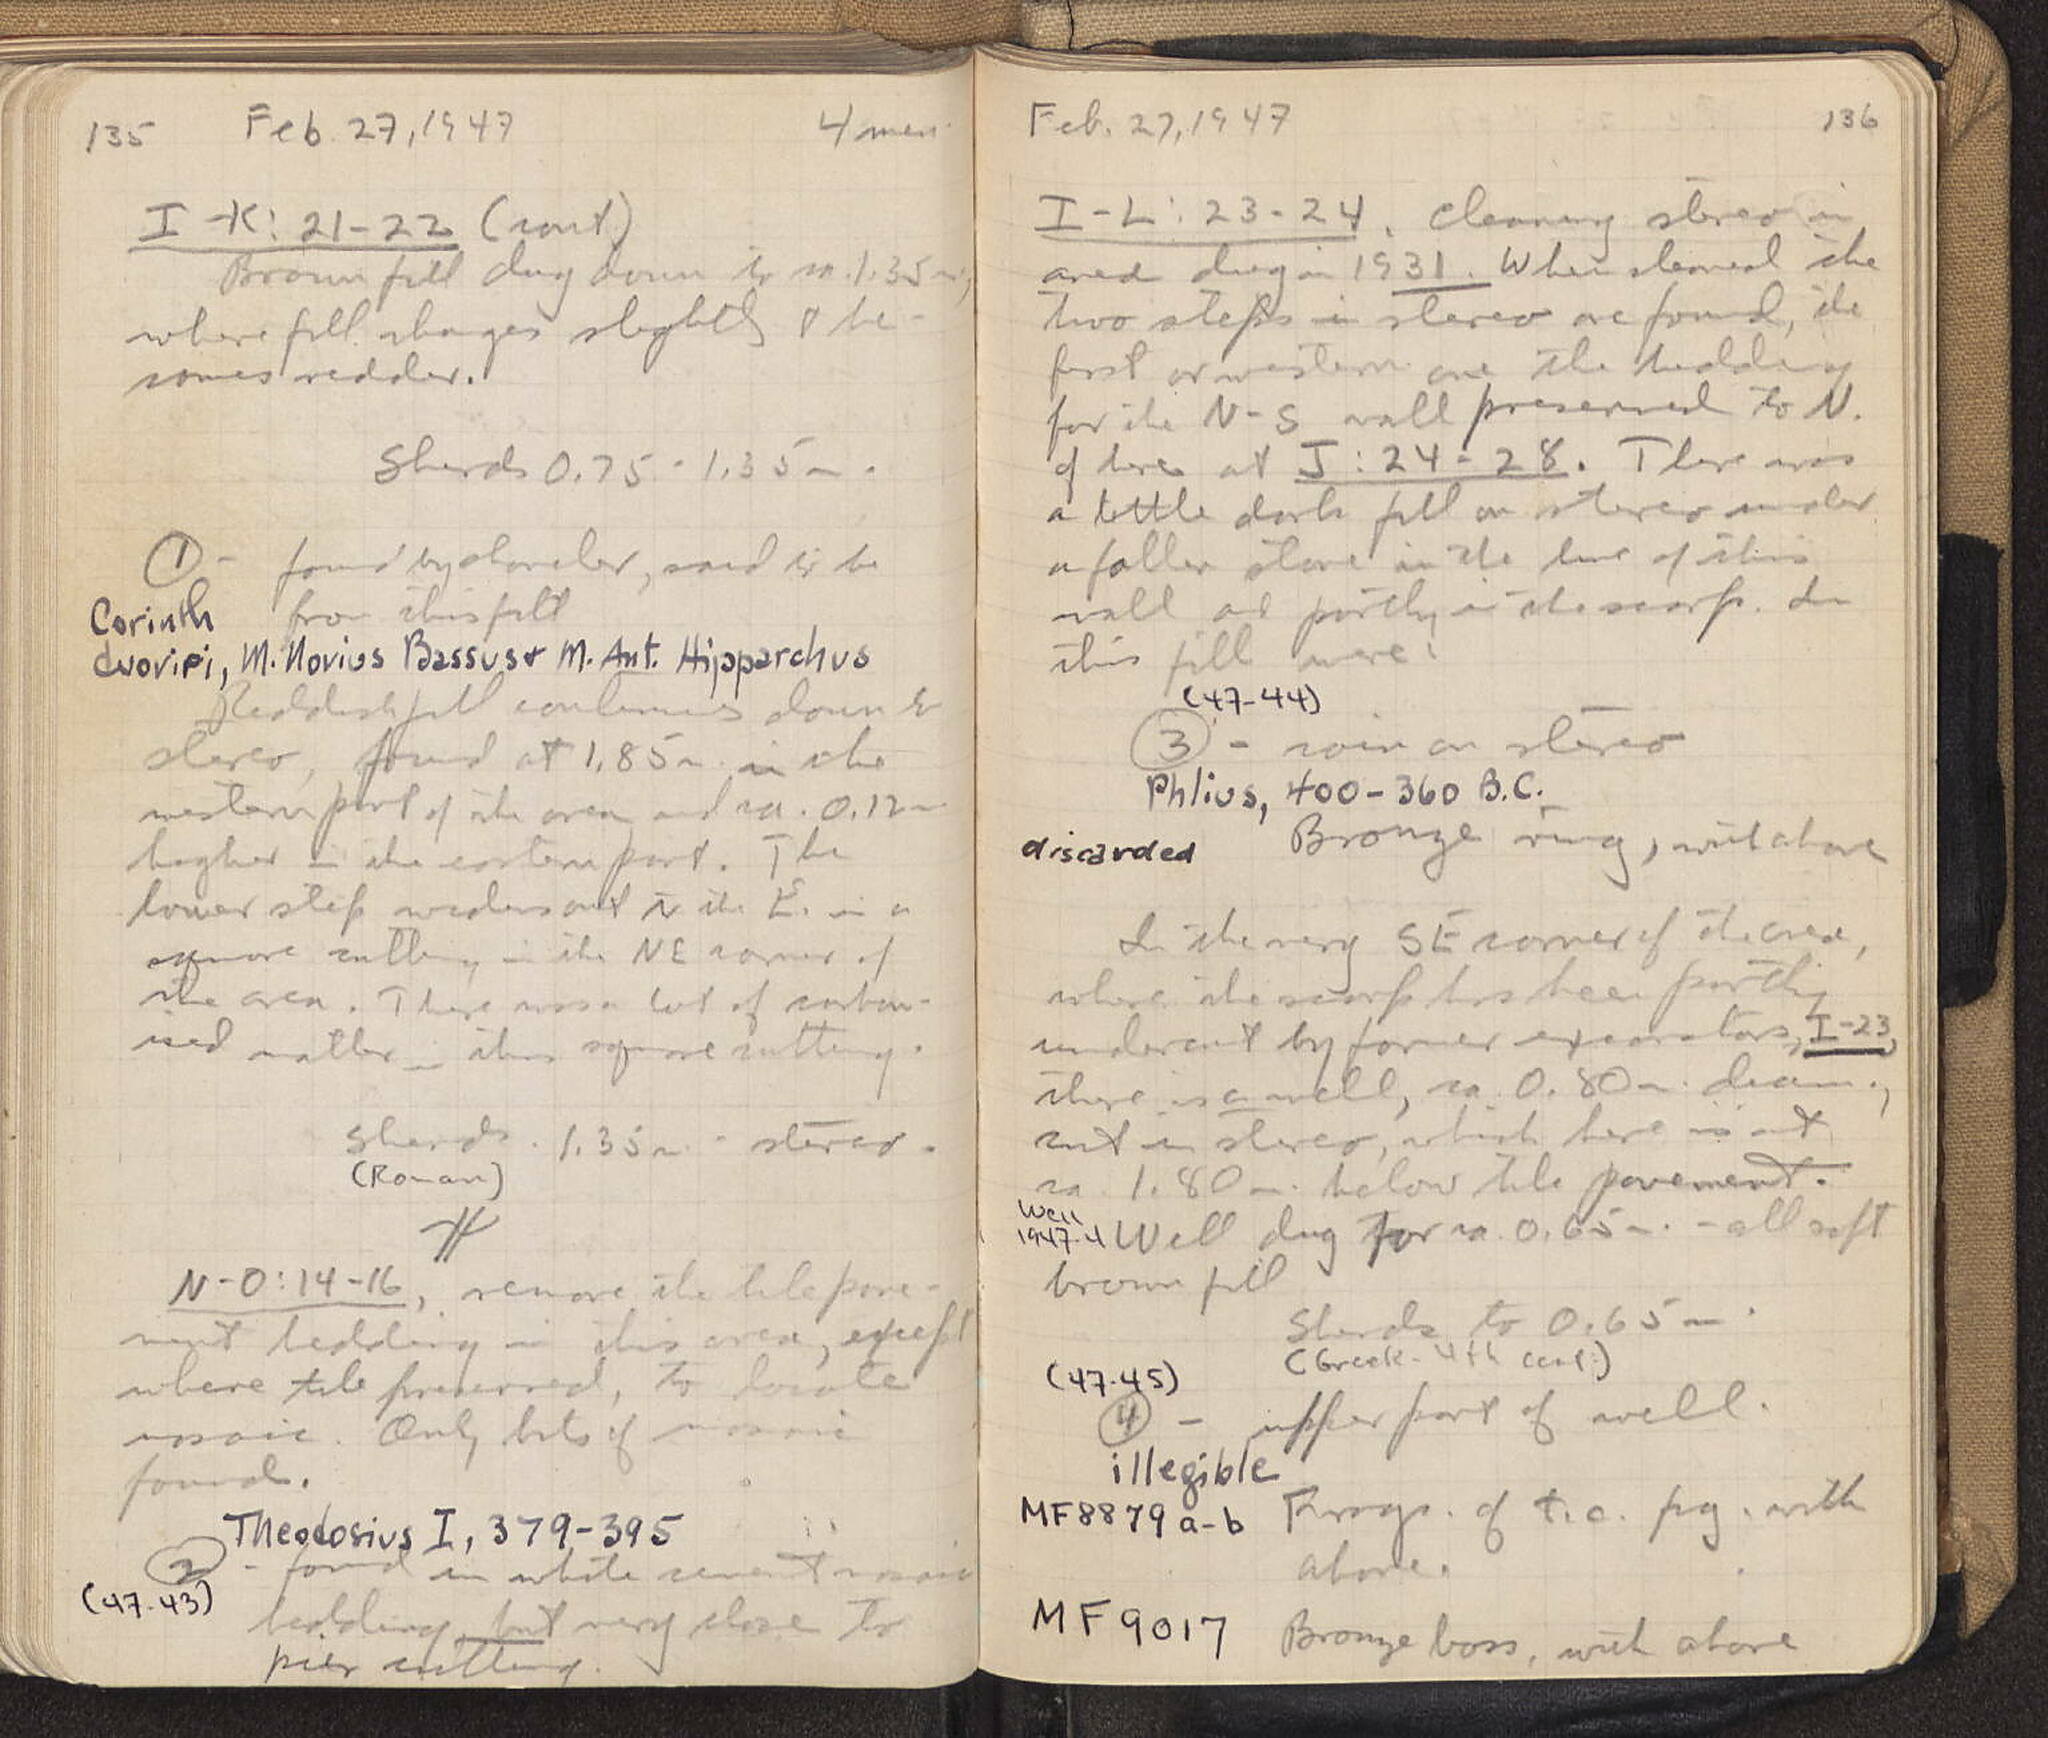 135 Feb. 27, 1947 4 men
I-K: 21-22 (cont)
Brown fill dug down to ca. 1.35 m,
where fill changes slightly & be-
comes redder.
Sherds 0.75 - 1.35 m.
① - found by shoveler, said to be
from this fill
Corinth
duoviri, M. Novius Bassus & M. Ant. Hipparchus
Reddish fill continues down to
stereo, found at 1.85 m. in the
western part of the area and ca. 0.12 m
higher in the eastern part. The
lower step widens out to the E. in a
square cutting in the NE corner of
the area. There was a lot of carbon-
ized matter in this square cutting.
Sherds 1.35 m. - stereo.
(Roman)
N-O: 14-16, remove the tile pave-
ment bedding in this area, except
where tile preserved, to locate
mosaic. Only bits of mosaic
found.
Theodosius I, 379-395
② - found in white cement mosaic
(47-43)
bedding, but very close to
pier cutting.
Feb. 27, 1947 136
I-L: 23-24. Cleaning stereo in
area dug in 1931. When cleaned the
two steps in stereo are found, the
first or western one the bedding
for the N-S wall preserved to N.
of here at J: 24-28. There was
a little dark fill on stereo under
a fallen stone in the line of this
wall and partly in the scarp. In
this fill were:
(47-44)
③ - coin on stereo
Phlius, 400-360 B.C.
discarded Bronze ring, with above
In the very SE corner of the area,
where the scarp has been partly
undercut by former excavators, I-23,
there is a well, ca. 0.80 m. diam.,
cut in stereo, which here is at
ca. 1.80 m. below tile pavement.
Well
1947-4 Well dug for ca. 0.65 m. - all soft
brown fill
Sherds to 0.65 m.
(Greek - 4th cent.)
(47-45)
④ - upper part of well.
illegible
MF8879 a-b Frags. of t.c. fig. with
above.
MF 9017 Bronze boss, with above